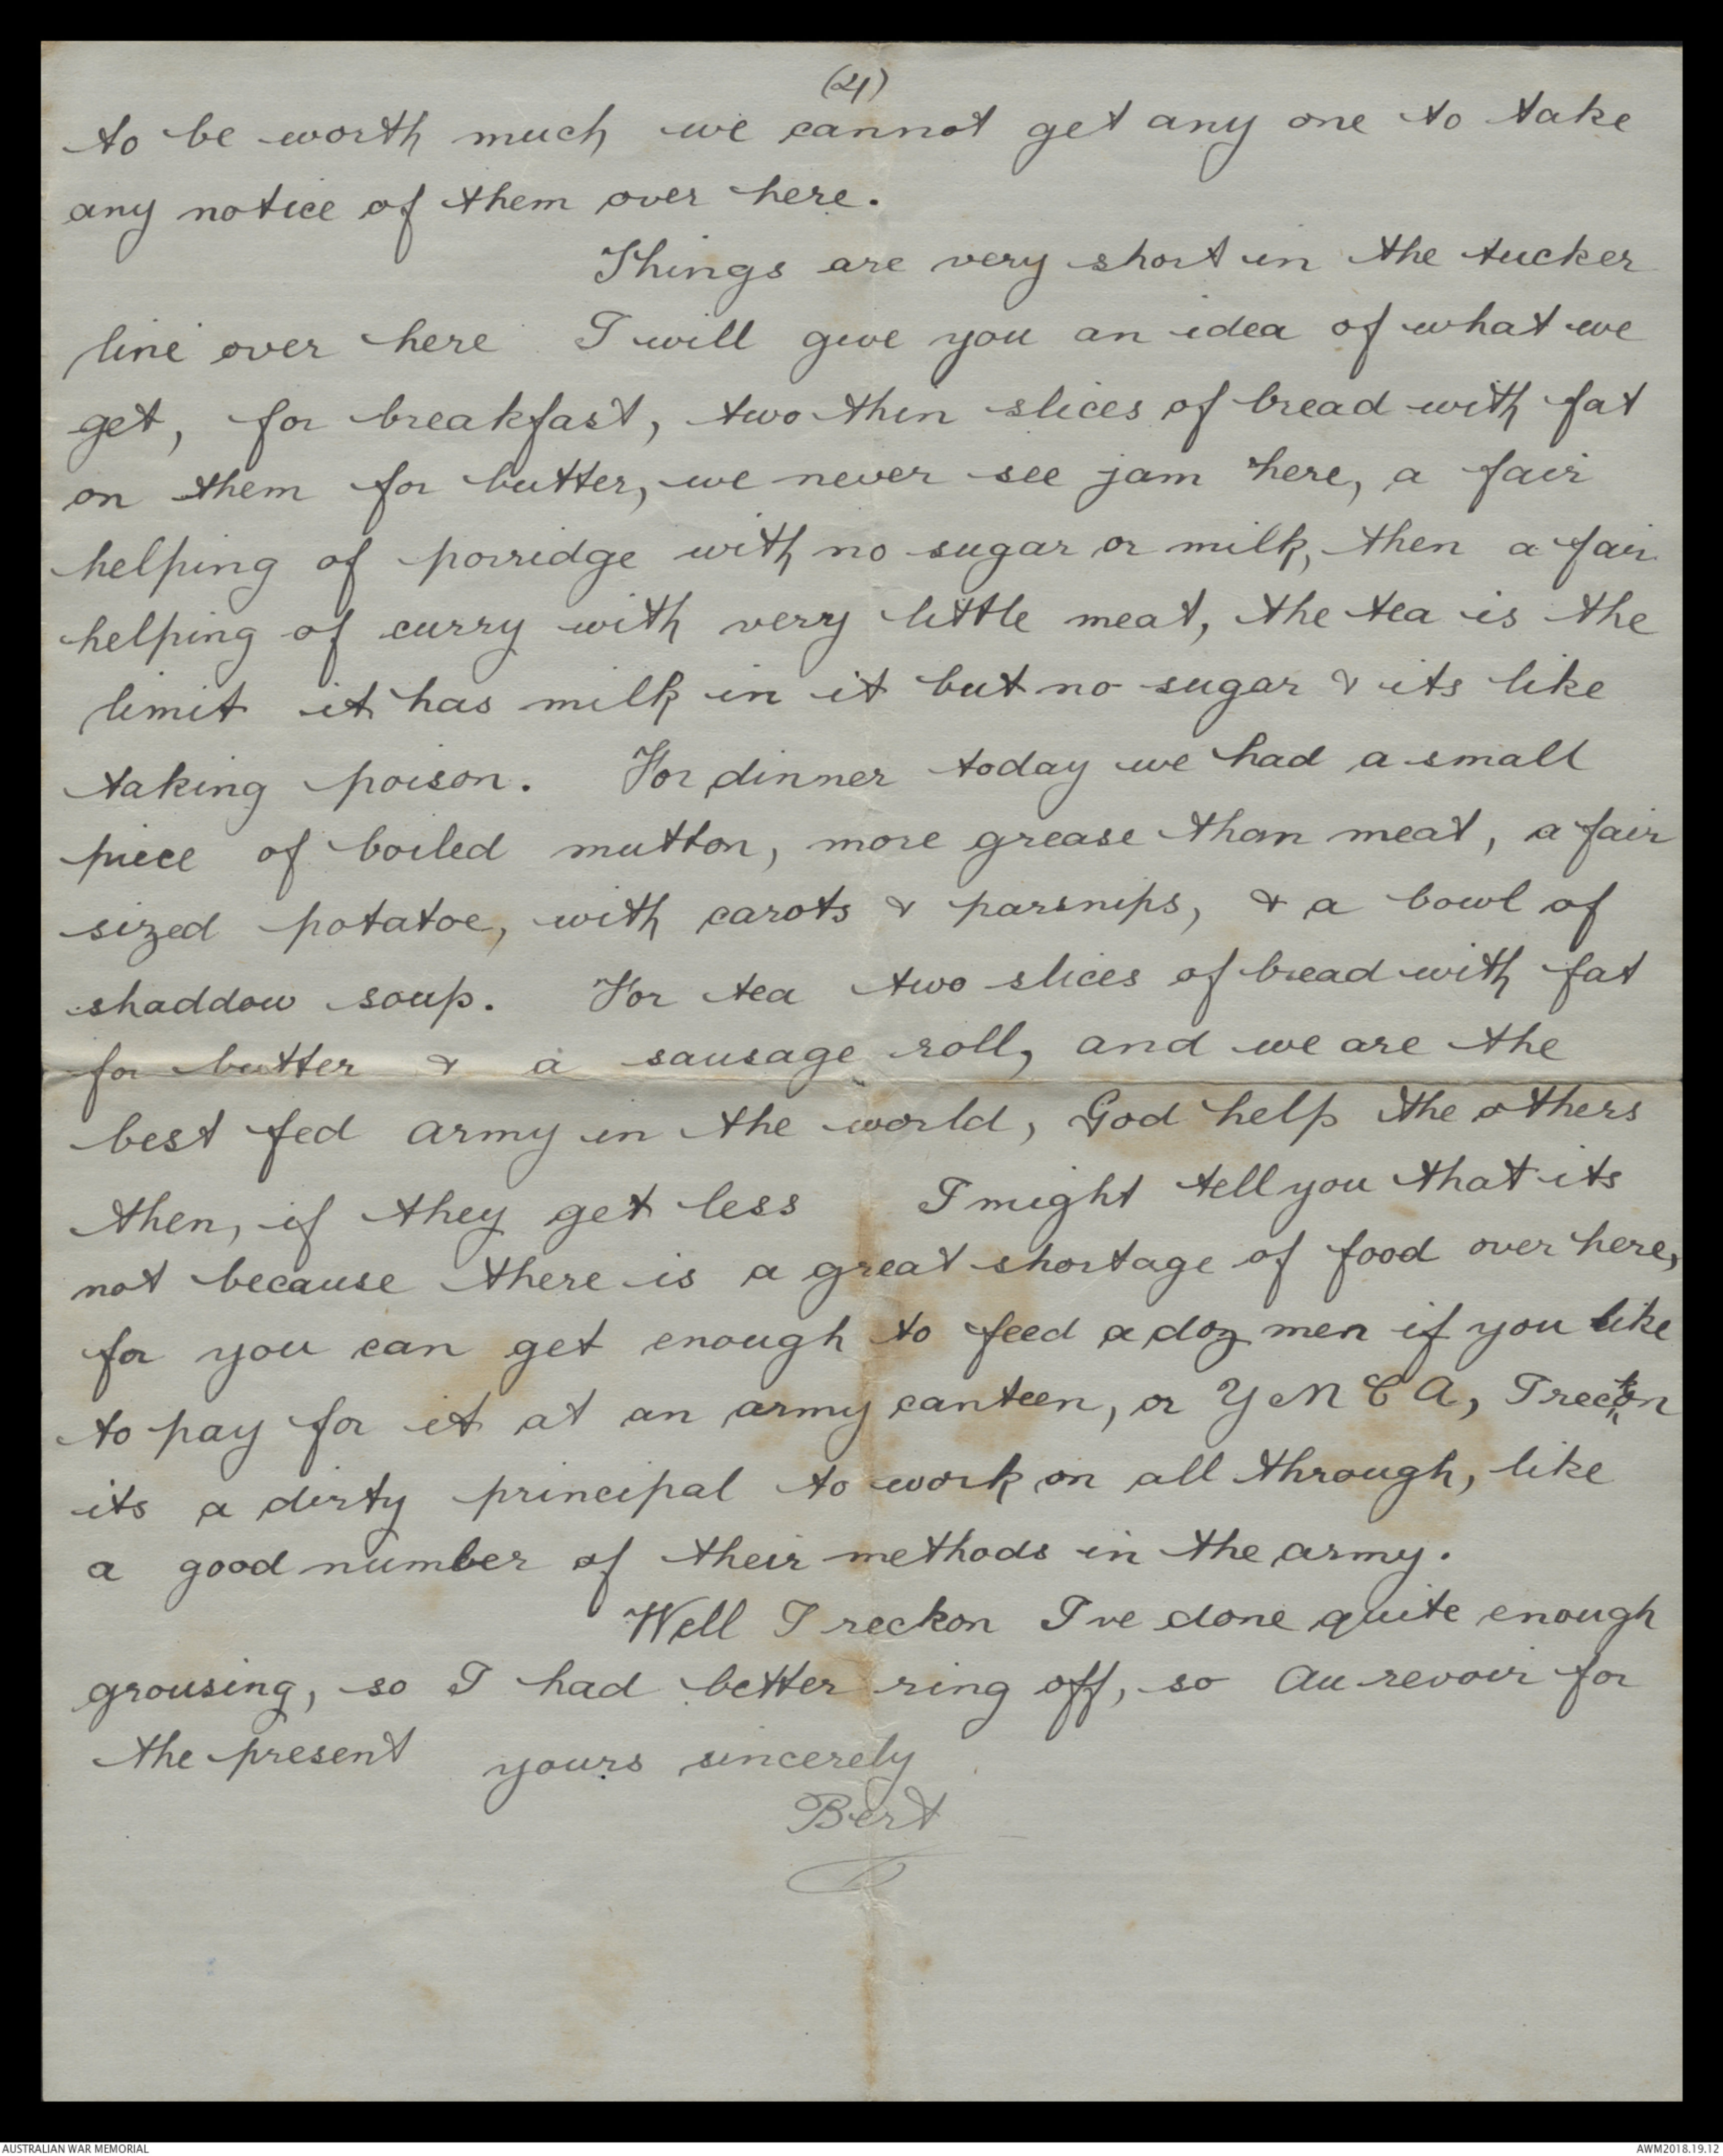 (4)
to be worth much we cannot get any one to take
any notice of them over here.
Things are very short in the tucker
line over here I will give you an idea of what we
get, for breakfast, two thin slices of bread with fat
on them for butter, we never see jam here, a fair
helping of porridge with no sugar or milk, then a fair
helping of curry with very little meat, the tea is the
limit it has milk in it but no sugar & its like
taking poison. For dinner today we had a small
piece of boiled mutton, more grease than meat, a fair
sized potatoe, with carots & parsnips, & a bowl of
shaddow soup. For tea two slices of bread with fat
for butter & a sausage roll, and we are the
best fed army in the world, God help the others
then, if they get less I might tell you that its
not because there is a great shortage of food over here,
for you can get enough to feed a doz men if you like
to pay for it at an army canteen, or Y M C A, I
its a dirty principal to work on all through, like
a good number of their methods in the army.
Well I reckon I've done quite enough
grousing, so I had better ring off, so Au revoir for
the present yours sincerely
Bert
AUSTRALIAN WAR MEMORIAL
AWM2018.19.12